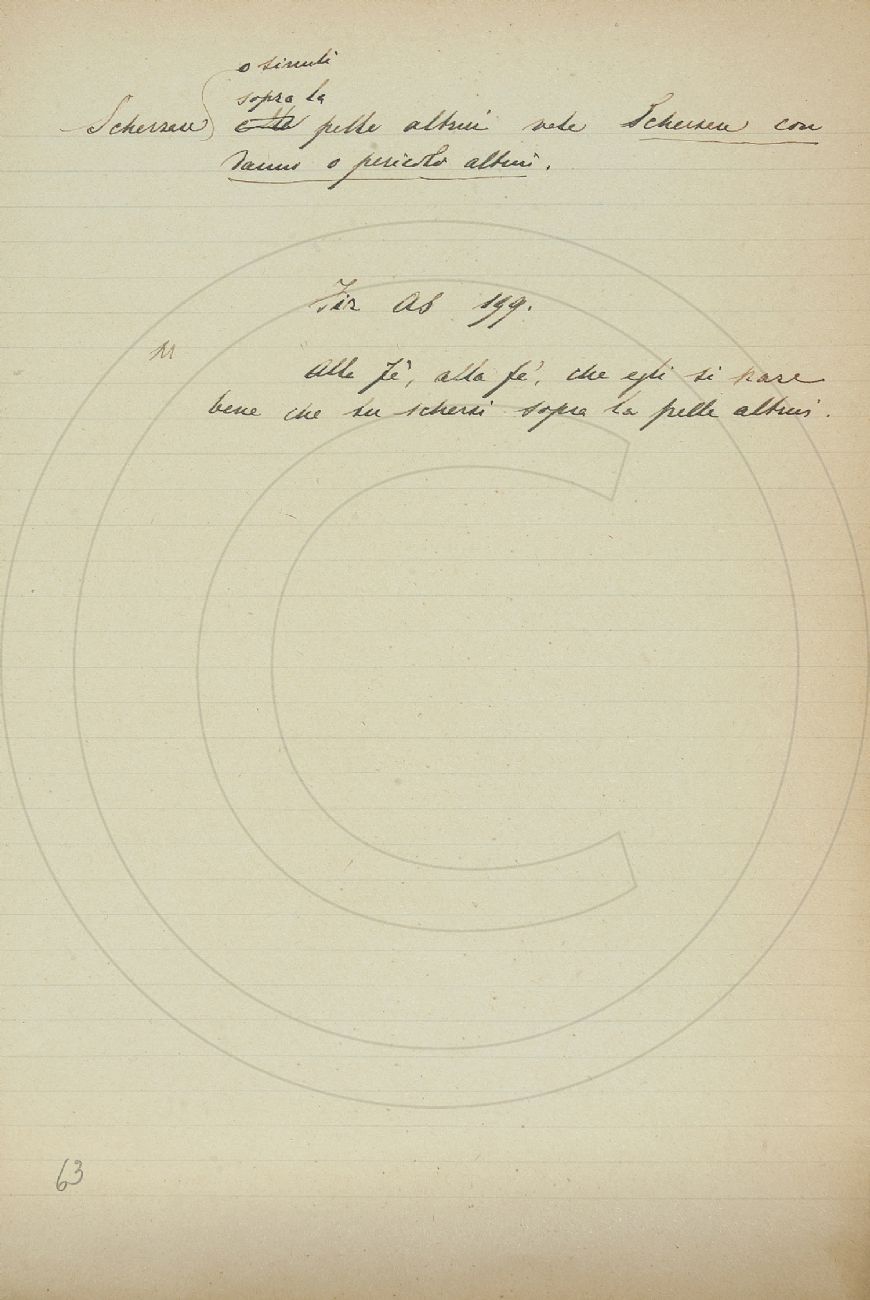 o simili
sopra la
Scherzare colla pelle altrui vale Scherzare con
danno o pericolo altrui.
Fir As 199.
M
Alla fè, alla fè, che egli si pare
bene che tu scherzi sopra la pelle altrui.
63